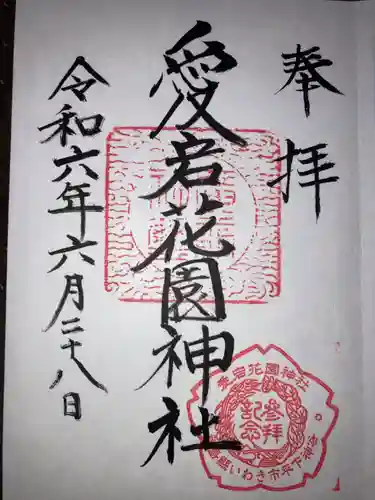 奉拝
愛宕花園神社
令和六年六月二十八日
愛宕花園神社
参拝記念
いわき市平下神谷